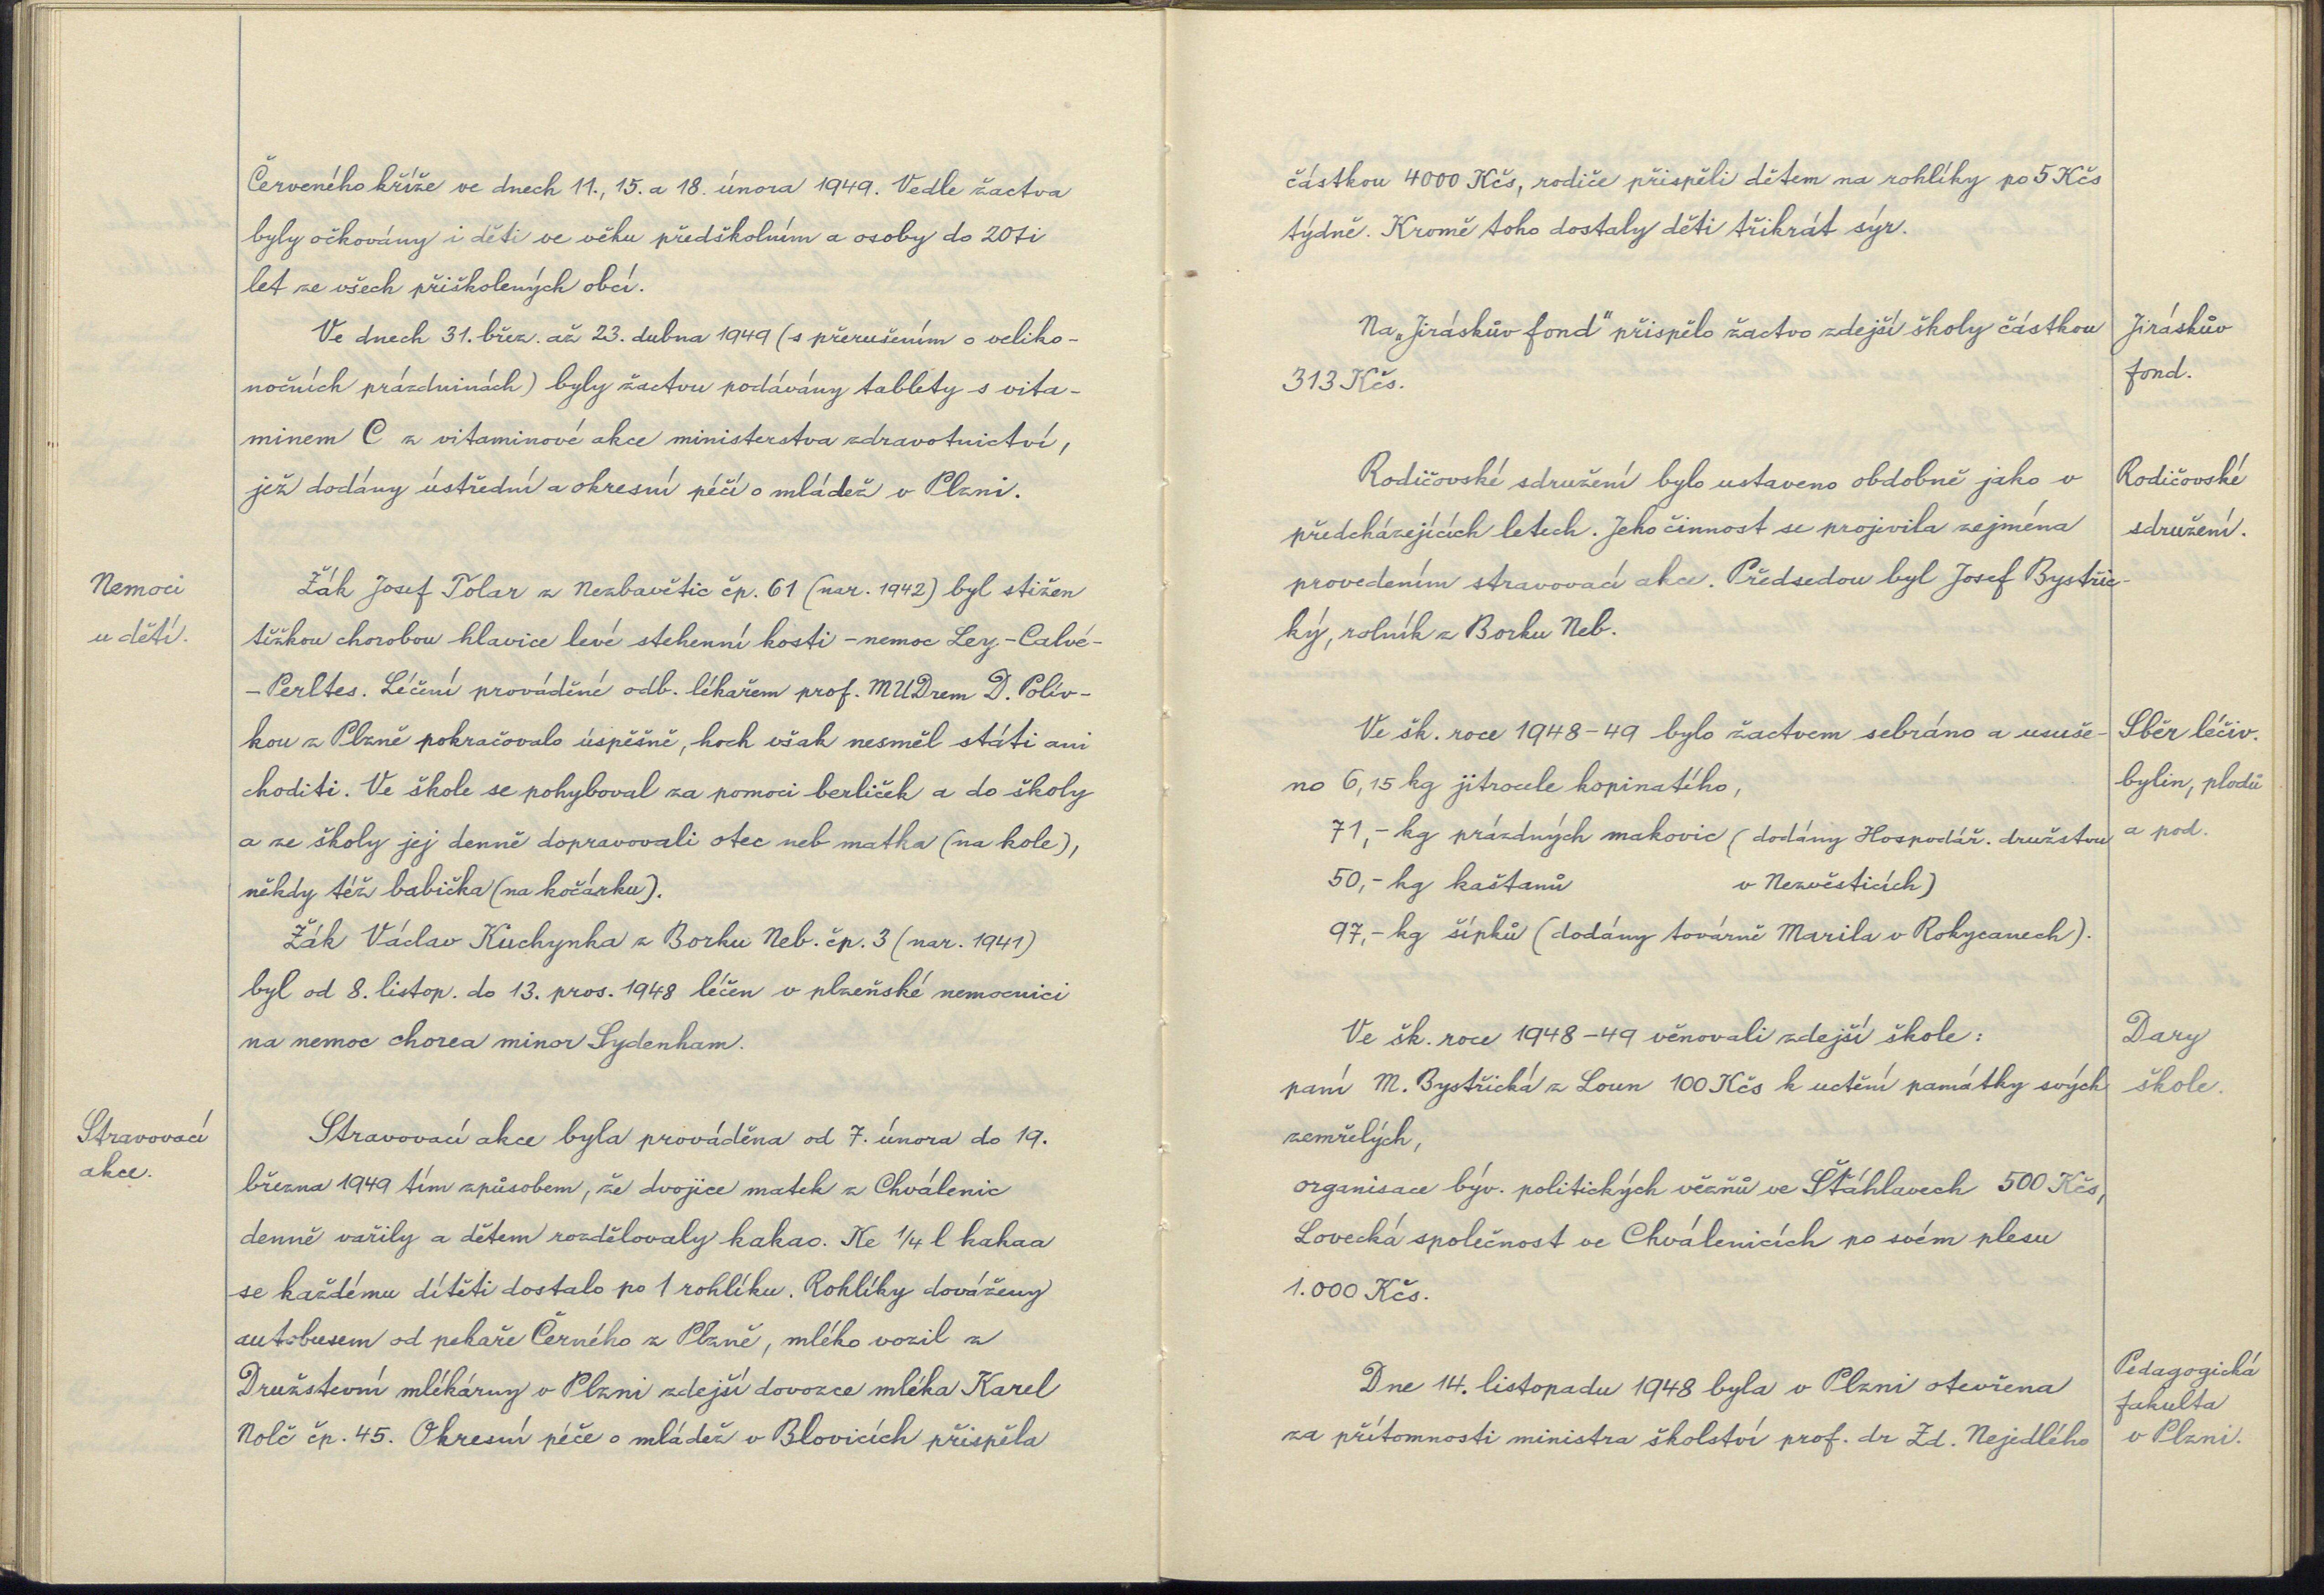 Červeného kříže ve dnech 11., 15. a 18. února 1949. Vedle žactva
byly očkovány i děti ve věku předškolním a osoby do 20ti
let ze všech přiškolených obcí.
Ve dnech 31. břez. až 23. dubna 1949 (s přerušením o veliko-
nočních prázdninách) byly žactvu podávány tablety s vita-
minem C z vitaminové akce ministerstva zdravotnictví,
jež dodány ústřední a okresní péčí o mládež v Plzni.
Nemoci
u dětí.
Žák Josef Tolar z Nezbavětic čp. 61 (nar. 1942) byl stižen
těžkou chorobou hlavice levé stehenní kosti - nemoc Ley-Calvé-
- Perltes. Léčení prováděné odb. lékařem prof. MUDrem D. Polív-
kou z Plzně pokračovalo úspěšně, hoch však nesměl státi ani
choditi. Ve škole se pohyboval za pomoci berliček a do školy
a ze školy jej denně dopravovali otec neb matka (na kole),
někdy též babička (na kočárku).
Žák Václav Kuchynka z Borku Neb. čp. 3 (nar. 1941)
byl od 8. listop. do 13. pros. 1948 léčen v plzeňské nemocnici
na nemoc chorea minor Sydenham.
Stravovací
akce.
Stravovací akce byla prováděna od 7. února do 19.
března 1949 tím způsobem, že dvojice matek z Chválenic
denně vařily a dětem rozdělovaly kakao. Ke 1/4 l kakaa
se každému dítěti dostalo po 1 rohlíku. Rohlíky dováženy
autobusem od pekaře Černého z Plzně, mléko vozil z
Družstevní mlékárny v Plzni zdejší dovozce mléka Karel
Nolč čp. 45. Okresní péče o mládež v Blovicích přispěla
částkou 4000 Kčs, rodiče přispěli dětem na rohlíky po 5 Kčs
týdně. Kromě toho dostaly děti třikrát sýr.
Na „Jiráskův fond" přispělo žactvo zdejší školy částkou
313 Kčs.
Jiráskův
fond.
Rodičovské sdružení bylo ustaveno obdobně jako v
předcházejících letech. Jeho činnost se projevila zejména
provedením stravovací akce. Předsedou byl Josef Bystřic-
ký, rolník z Borku Neb.
Rodičovské
sdružení.
Ve šk. roce 1948-49 bylo žactvem sebráno a usuše-
no 6,15 kg jitrocele kopinatého,
71,- kg prázdných makovic (dodány Hospodář. družstvu
50,- kg kaštanů v Nezvěsticích)
97,- kg šípků (dodány továrně Marila v Rokycanech).
Sběr léčiv.
bylin, plodů
a pod.
Ve šk. roce 1948-49 věnovali zdejší škole:
paní M. Bystřická z Loun 100 Kčs k uctění památky svých
zemřelých,
organisace býv. politických vězňů ve Šťáhlavech 500 Kčs,
Lovecká společnost ve Chválenicích po svém plesu
1.000 Kčs.
Dary
škole.
Dne 14. listopadu 1948 byla v Plzni otevřena
za přítomnosti ministra školství prof. dr Zd. Nejedlého
Pedagogická
fakulta
v Plzni.